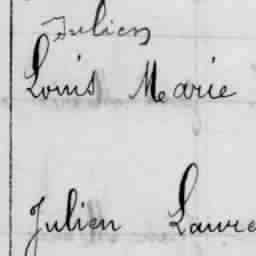 Julien
Louis Marie
Julien